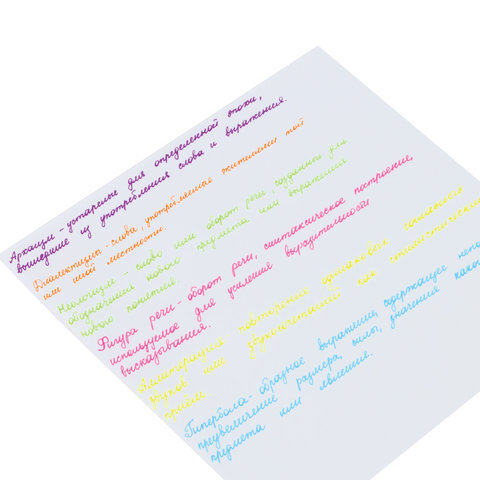 Архаизм - устарелые для определенной эпохи,
вышедшие из употребления слова и выражения.
Диалектизмы - слова, употребляемые жителями той
или иной местности.
Неологизм - слово или оборот речи, созданный для
обозначения нового предмета или выражения
нового понятия.
Фигура речи - оборот речи, синтаксическое построение,
используемое для усиления выразительности
высказывания.
Аллитерация повторение одинаковых согласных
звуков или звукосочетаний как стилистический
приём.
Гипербола - образное выражение, содержащее непо
преувеличение размера, силы, значения како
предмета или явления.